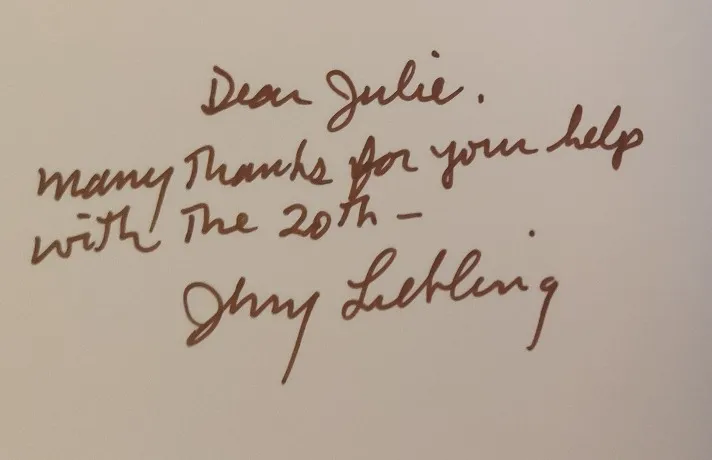 Dear Julie.
Many Thanks for your help
with The 20th –
Jerry Liebling